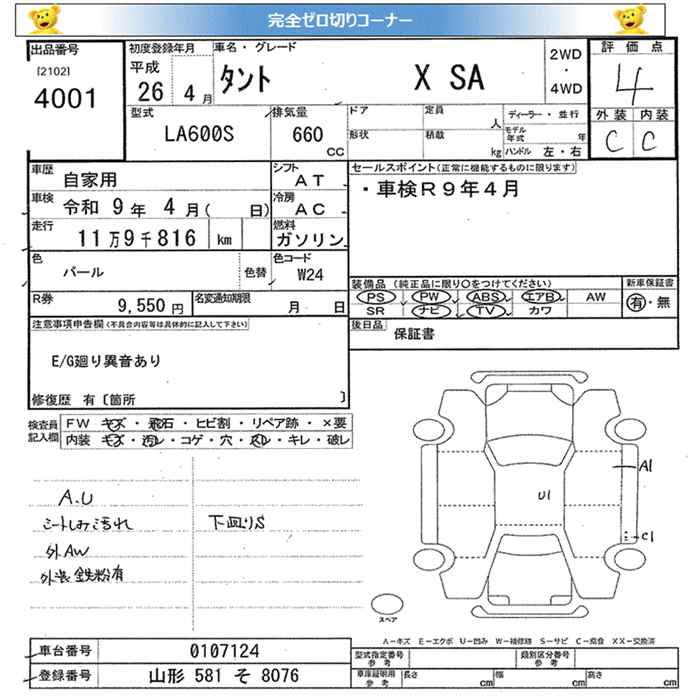 完全ゼロ切りコーナー
出品番号
[2102]
4001
初度登録年月
平成
26 4 月
車名・グレード
タント X SA
2WD
・
4WD
評価点
4
外装 内装
C C
型式
LA600S
排気量
660
CC
ドア
形状
定員
人
積載
kg
ディーラー・並行
モデル年式 年
ハンドル 左・右
車歴 自家用
シフト AT
車検 令和 9 年 4 月( 日)
冷房 AC
走行 11 万 9 千 816 km
燃料 ガソリン
色 パール
色替
色コード W24
R券 9,550 円
名変通知期限 月 日
セールスポイント(正常に機能するものに限ります)
・車検R9年4月
装備品 (純正品に限り○をつけてください)
PS PW ABS エアB AW
SR ナビ TV カワ
新車保証書
有・無
後日品 保証書
注意事項申告欄(不具合内容等は具体的に記入して下さい)
E/G廻り異音あり
修復歴 有〔箇所 〕
検査員記入欄
FW キズ・飛石・ヒビ割・リペア跡・×要
内装 キズ・汚レ・コゲ・穴・スレ・キレ・破レ
A.U
シートしみ汚れ
外AW
外装鉄粉有
下廻りS
A1
U1
C1
スペア
A－キズ E－エクボ U－凹み W－補修跡 S－サビ C－腐食 XX－交換済
車台番号 0107124
登録番号 山形 581 そ 8076
型式指定番号
参考
類別区分番号
参考
車庫証明用
参考
長さ cm
幅 cm
高さ cm